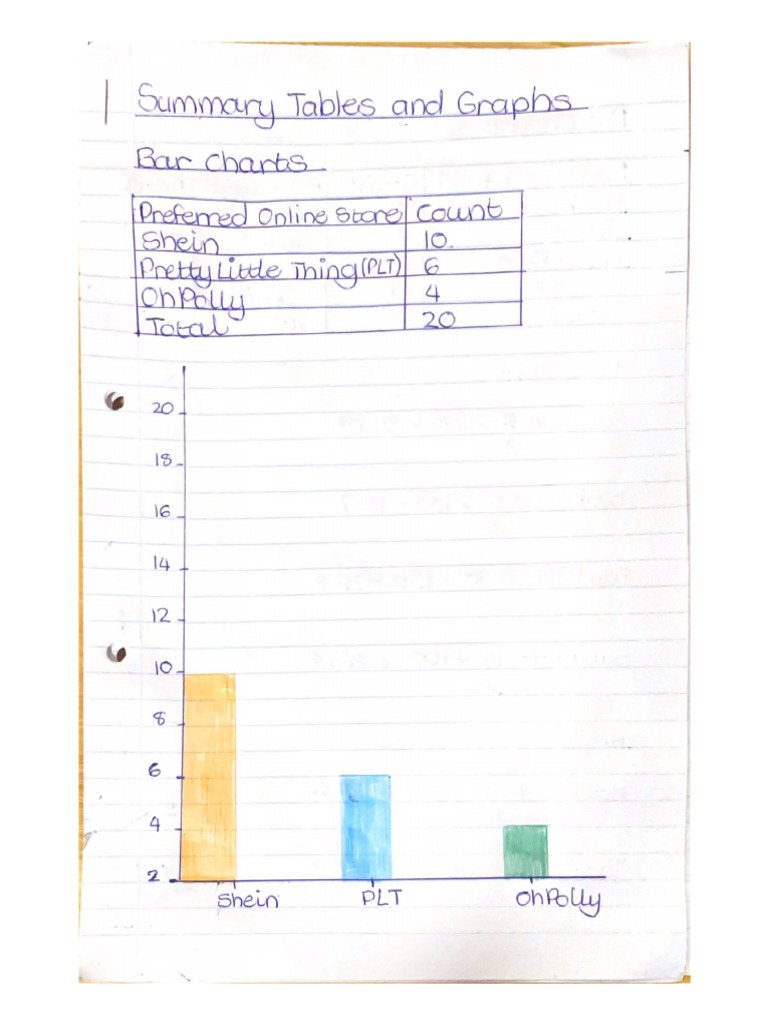 Summary Tables and Graphs
Bar charts
Preferred Online Store Count
Shein 10.
Pretty Little Thing (PLT) 6
OhPolly 4
Total 20
20
18
16
14
12
10
8
6
4
2
Shein PLT OhPolly